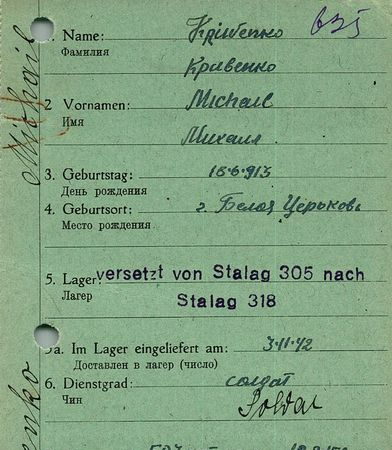 Name: Kriwenko 635
Фамилия Кривенко
2 Vornamen: Michael
Имя Михаил
3. Geburtstag: 18.6.913
День рождения
4. Geburtsort: г. Белая Церьковь
Место рождения
5. Lager: versetzt von Stalag 305 nach
Лагер Stalag 318
5a. Im Lager eingeliefert am: 3.11.42
Доставлен в лагер (число)
6. Dienstgrad: солдат
Чин Soldat
Michail